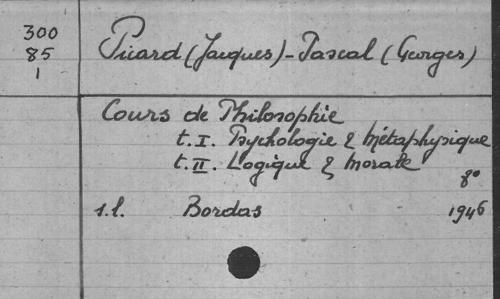 300
85
1
Picard (Jacques) - Pascal (Georges)
Cours de Philosophie
t. I. Psychologie & Métaphysique
t. II. Logique & Morale
8°
s.l. Bordas 1946